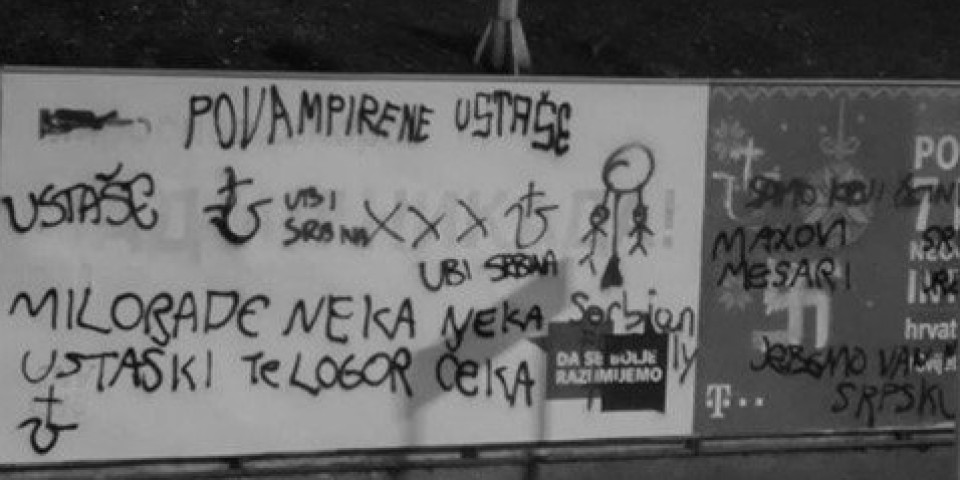 POVAMPIRENE USTAŠE
USTAŠE
UBI
SRBINA XXX
UBI SRBINA
MILORADE NEKA NEKA
USTAŠKI Te LOGOR ČEKA
Serbian
DA SE BOLJE
RAZUMIJEMO
SAMO
MAXOVI
MESARI
JEBEMO VAM
SRPSKU
PO
hrvat
T..